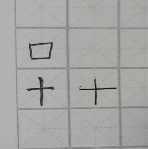 口
十 十